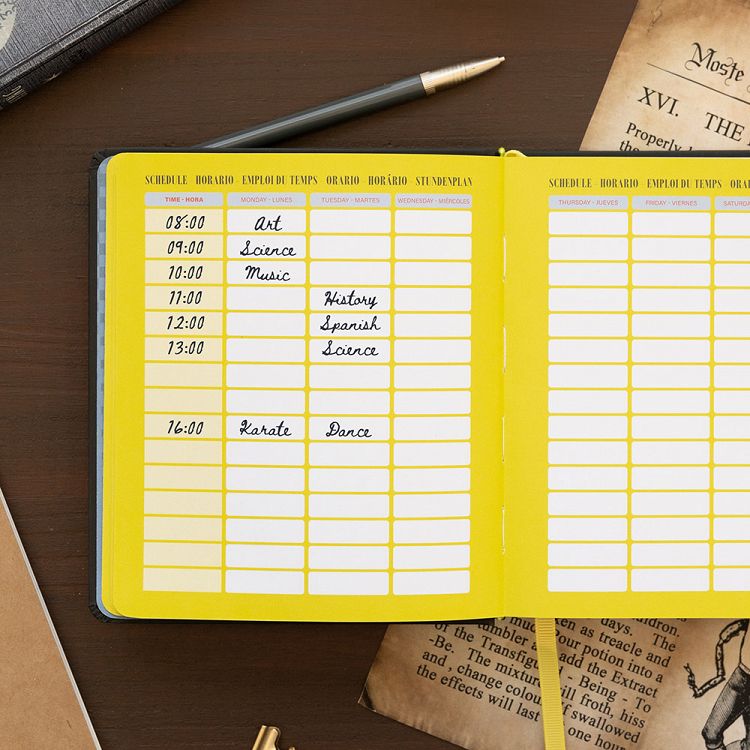 Moste
XVI. THE
Properly
SCHEDULE · HORARIO · EMPLOI DU TEMPS · ORARIO · HORÁRIO · STUNDENPLAN
TIME · HORA MONDAY · LUNES TUESDAY · MARTES WEDNESDAY · MIÉRCOLES
08:00 Art
09:00 Science
10:00 Music
11:00 History
12:00 Spanish
13:00 Science
16:00 Karate Dance
SCHEDULE · HORARIO · EMPLOI DU TEMPS
THURSDAY · JUEVES FRIDAY · VIERNES
days. The
Pour potion into a
as treacle and
of the add the Extract
-Be. The mixture will froth, hiss
and, change colour if swallowed
the effects will last one hour